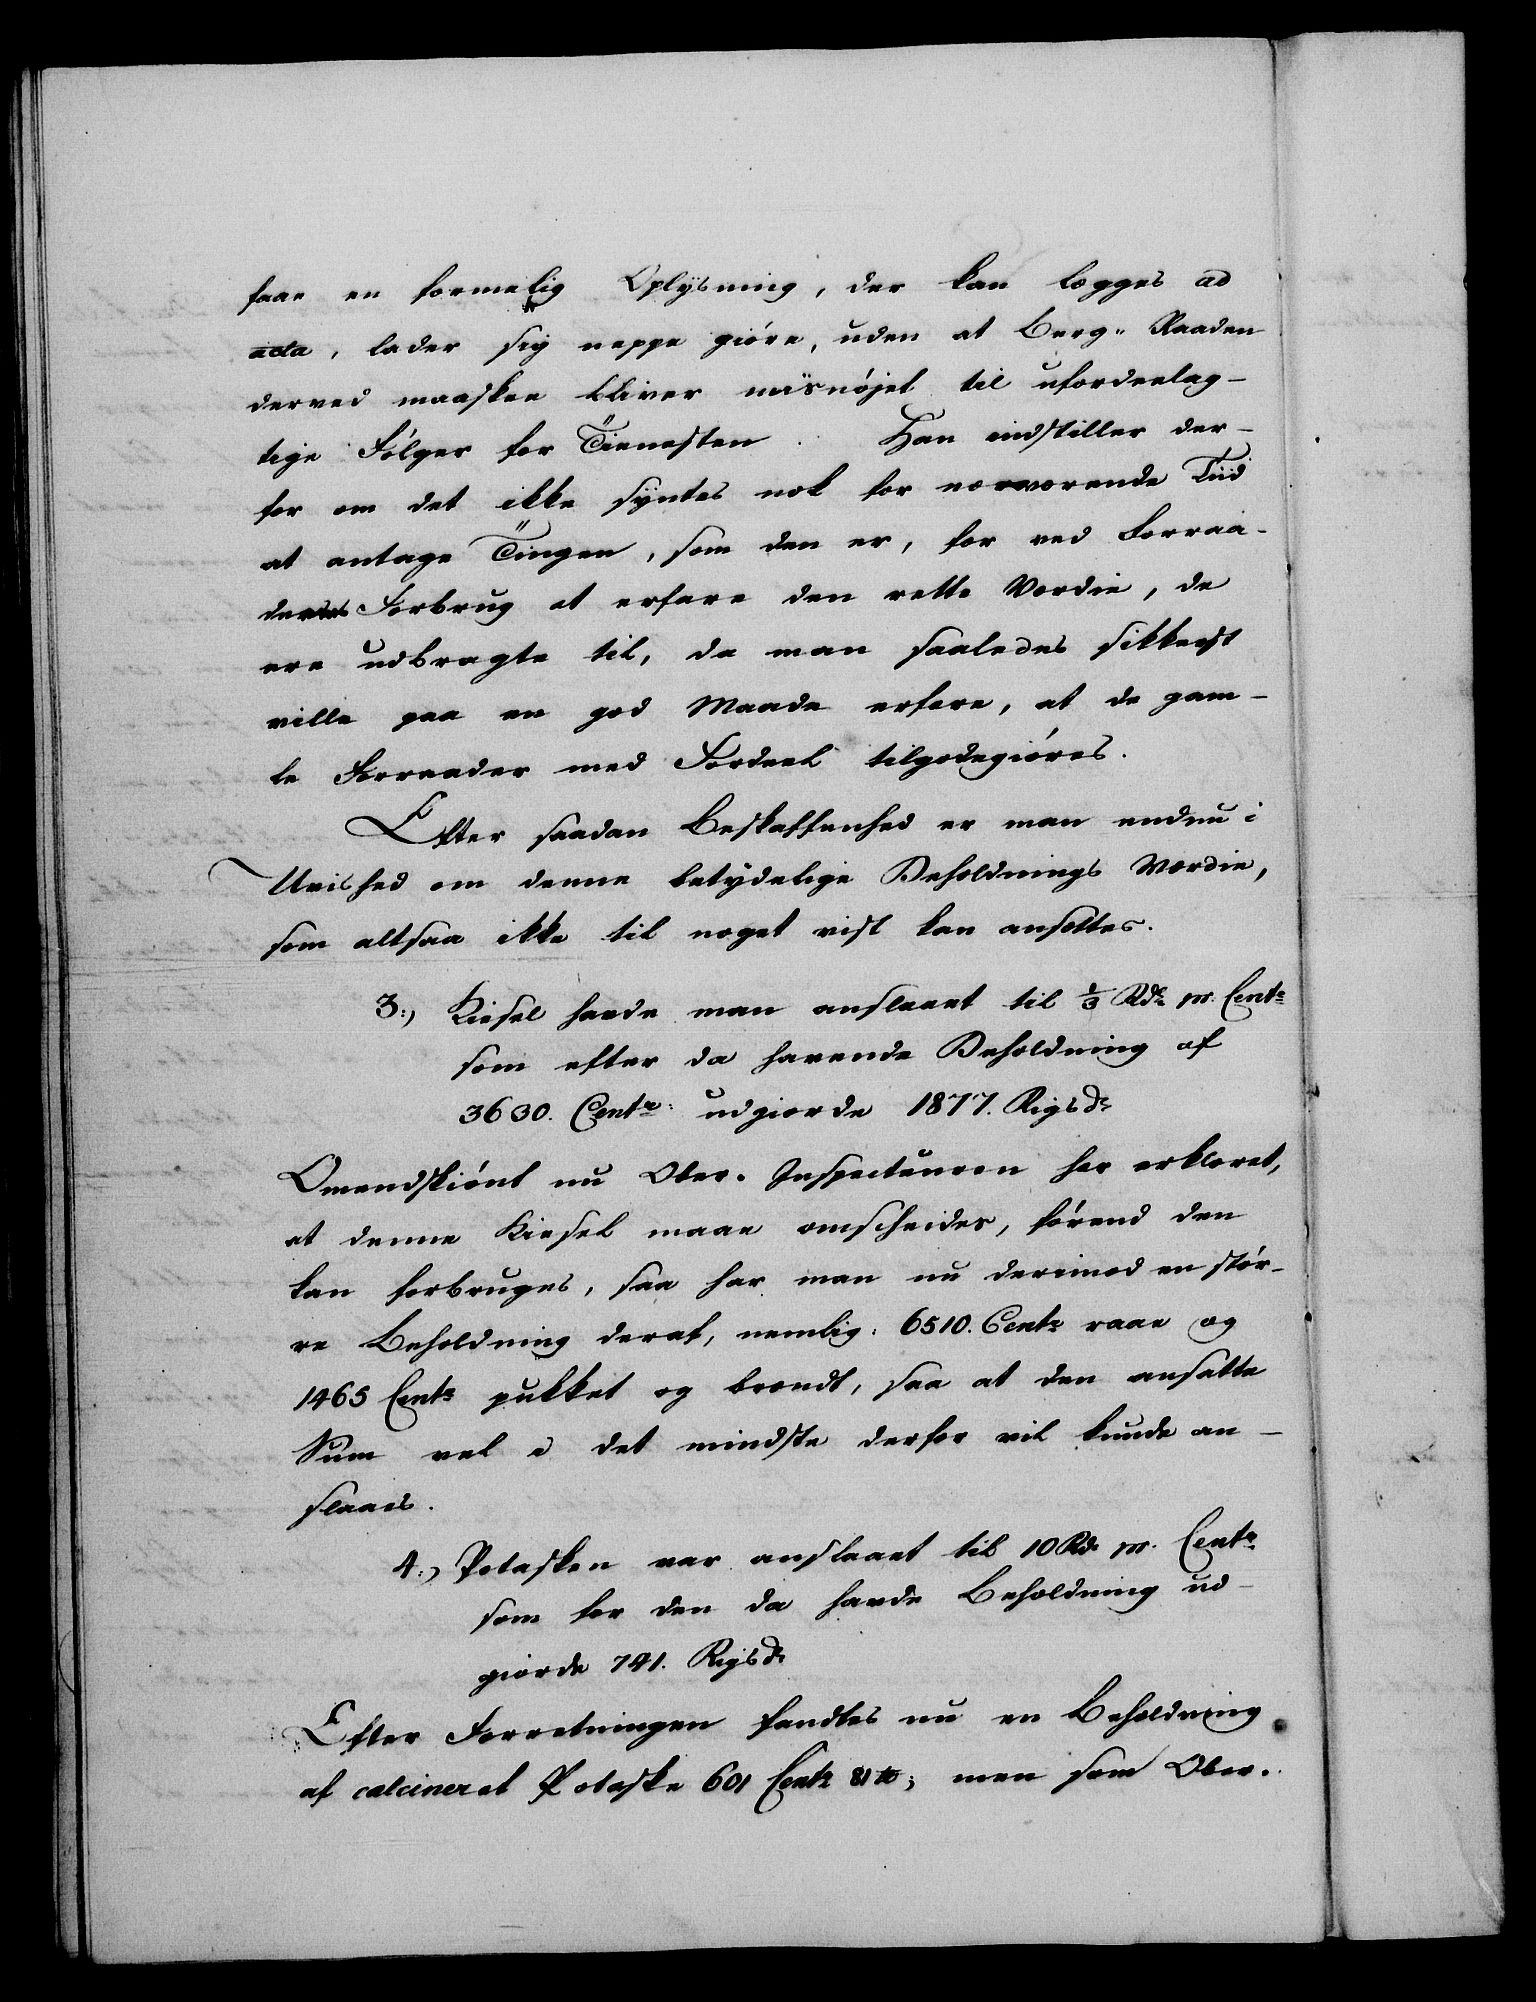 faae en formelig Oplÿsning, der kan lægges ad
acta, lader sig neppe giöre, uden at Berg-Raaden
derved maaskee bliver misnöjet til ufordeelag-
tige Fölger for Tienesten. Han indstiller der-
for om det ikke sÿntes nok for nærværende Tiid
at antage Tingen, som den er, for ved Forraa-
dernes Forbrug at erfare den rette Værdie, de
ere udbragte til, da man saaledes sikkerst
ville paa en god Maade erfare, at de gam-
le Forraader med Fordeel tilgodegiöres.
Efter saadan Beskaffenhed er man endnu i
Uvished om denne betydelige Beholdnings Værdie,
som altsaa ikke til noget vist kan ansættes.
3.) Kiesel havde man anslaaet til 1/3 Rdr pr. Centr
som efter da havende Beholdning af
3630. Centr udgiorde 1877. Rigsdr
Omendskiönt nu Ober-Inspecteuren har erklæret,
at denne Kiesel maae omscheides, förend den
kan forbruges, saa har man nu derimod en stör-
re Beholdning deraf, nemlig: 6510. Centr raae og
1465 Centr pukket og brændt, saa at den ansatte
Sum vel i det mindste derfor vil kunde an-
slaaes.
4.) Potasken var anslaaet til 10 Rdr pr. Centr
som for den da havde Beholdning ud-
giorde 741. Rigsdr
Efter Forretningen fandtes nu en Beholdning
af calcineret Potaske 601 Centr 81 ℔; men som Ober-